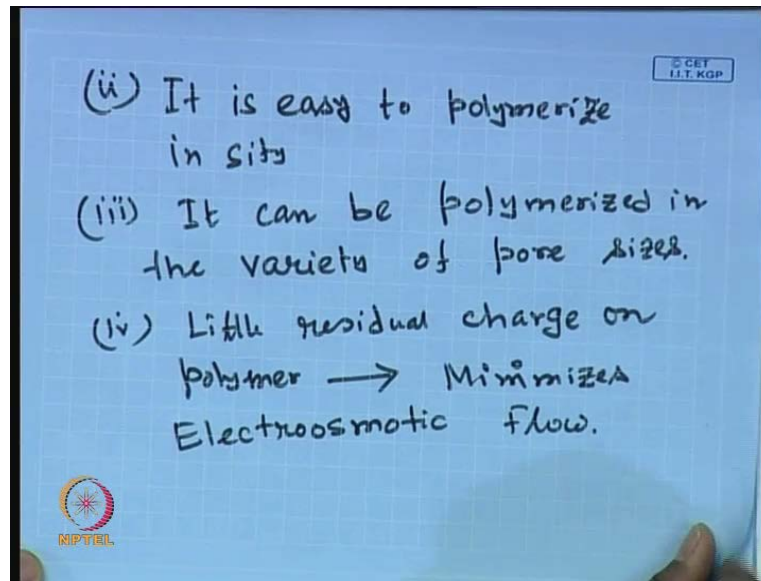 © CET
I.I.T. KGP
(ii) It is easy to polymerize
in sity
(iii) It can be polymerized in
the variety of pore sizes.
(iv) Little residual charge on
polymer → Minimizes
Electroosmotic flow.
NPTEL